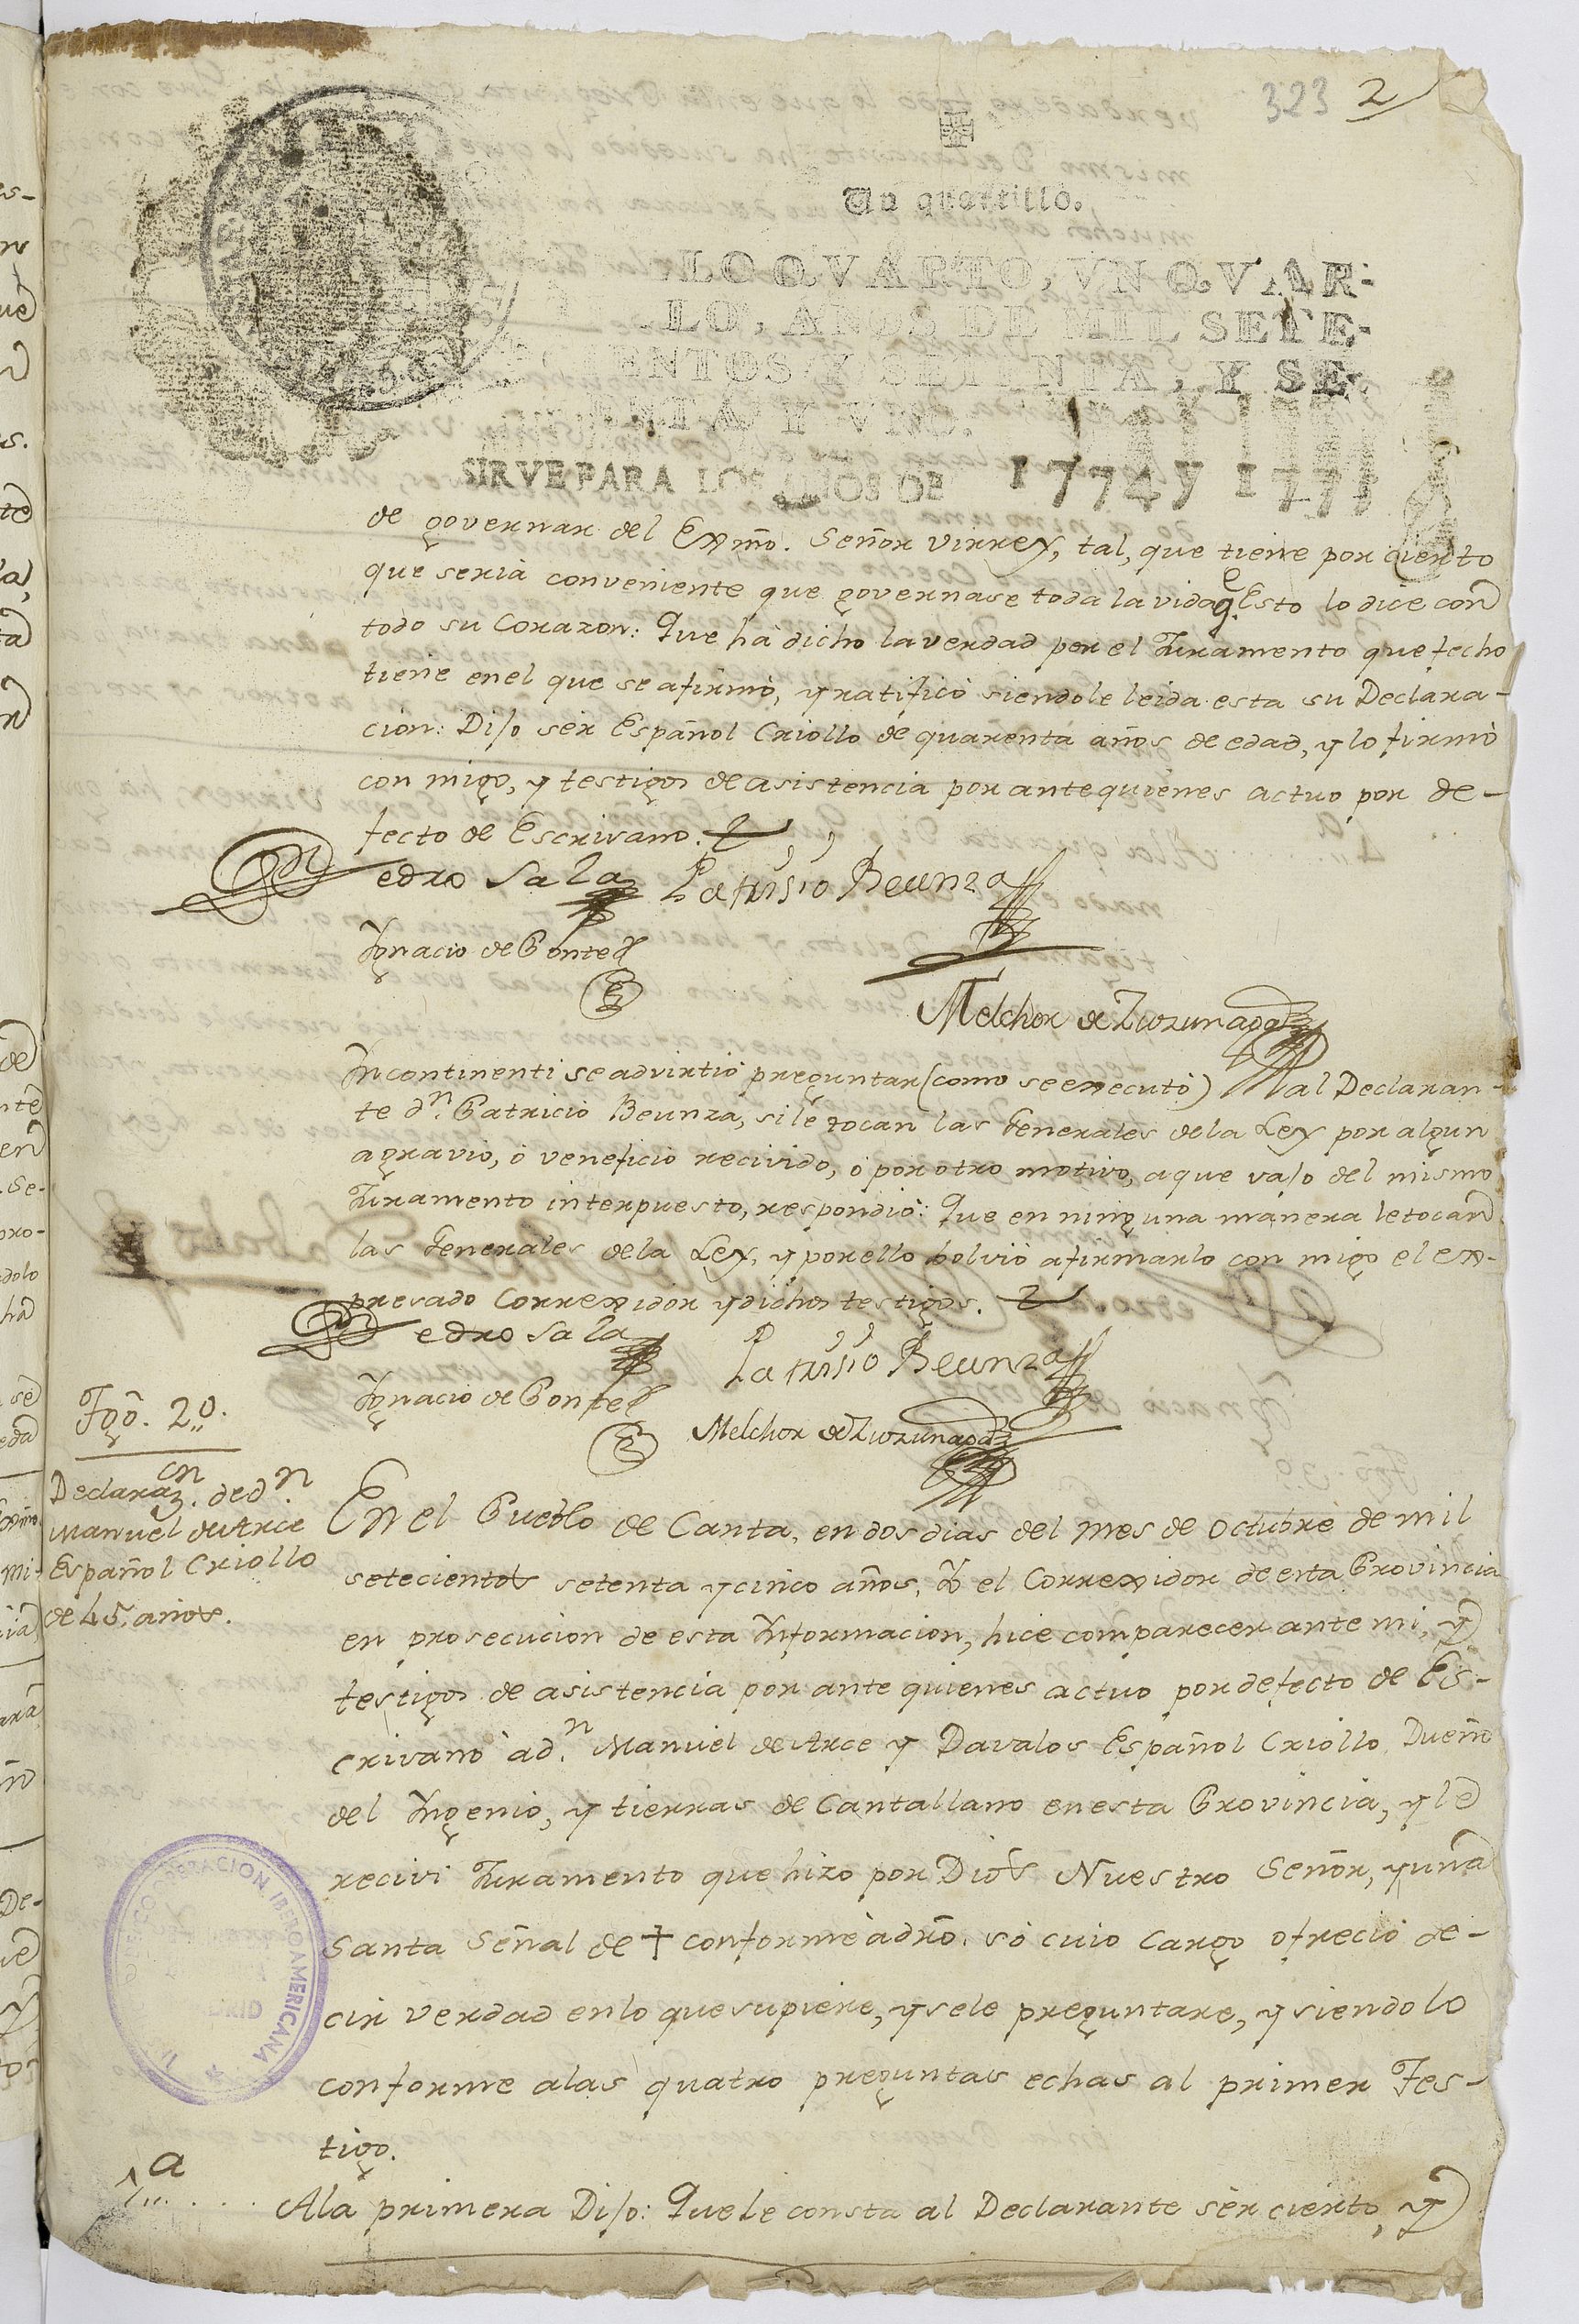 323 2
Un quartillo.
LO QVARTO, VN QVAR-
LO, AÑOS DE MIL SETE-
ENTOS Y SETENTA, Y SE-
TENTA Y VNO.
SIRVE PARA LOS AÑOS DE 1774 y 1775
de governar del Exmo. Señor Virrey, tal, que tiene por cierto
que seria conveniente que governase toda la vida, q.e Esto lo dice con
todo su Corazon: Que hà dicho la verdad por el Juramento que fecho
tiene en el que se afirmò, y ratificò siendole leida esta su Declara-
cion: Dijo sèr Español Criollo de quarenta años de edad, y lo firmò
con migo, y testigos de asistencia por ante quienes actuo por de-
fecto de Escrivano.
Pedro Sala Patrisio Beunza
Ygnacio de Ponte
Melchor de Luzunaga
Yncontinenti se advirtiò preguntar (como se executò) al Declaran-
te d.n Patricio Beunza, si le tocan las Generales de la Ley por algun
agravio, ò veneficio recivido, ò por otro motivo, a que vajo del mismo
Juramento interpuesto, respondiò: Que en ninguna manera le tocan
las Generales de la Ley, y por ello bolviò afirmarlo con migo el ex-
presado Correxidor y dichos testigos.
Pedro Sala Patrisio Beunza
Ygnacio de Ponte
Melchor de Luzunaga
Tgõ. 2.º
Declaraz.cn de d.n
Manuel de Arce
Español Criollo
de 45, años.
En el Pueblo de Canta, en dos dias del mes de Octubre de mil
setecientos setenta y cinco años, Yo el Correxidor de esta Provincia
en prosecucion de esta Ynformacion, hice comparecer ante mi, y
testigos de asistencia por ante quienes actuo por defecto de Es-
crivano à d.n Manuel de Arce y Davalos Español Criollo Dueño
del Yngenio, y tierras de Cantallano en esta Provincia, y le
recivi Juramento que hizo por Dios Nuestro Señor, y una
Santa Señal de + conforme à drõ. sò cuio Cargo ofreciò de-
cir Verdad en lo que supiere, y se le preguntare, y siendolo
conforme a las quatro preguntas echas al primer Tes-
tigo.
1.a .... A la primera Dijo: Que le consta al Declarante sèr cierto, y
COOPERACION IBEROAMERICANA